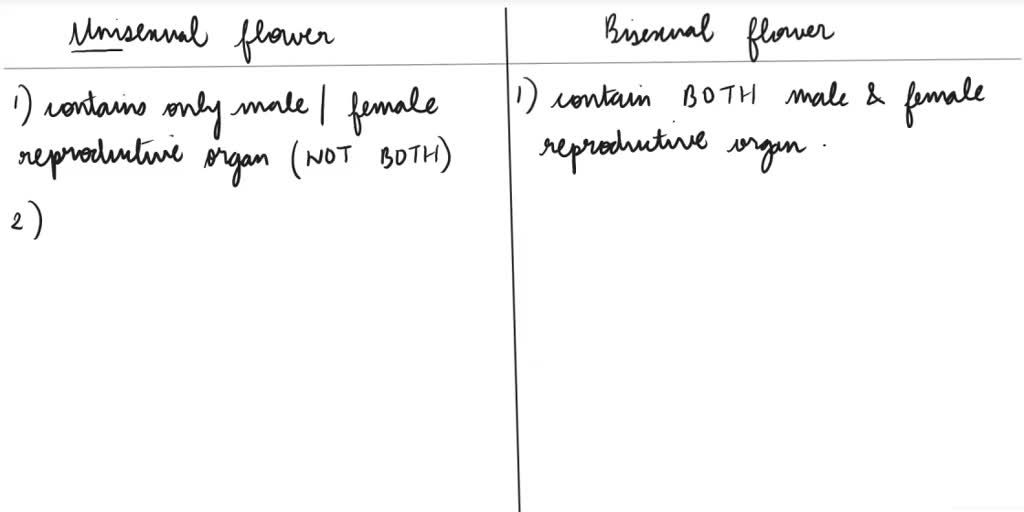 Unisexual flower
1) contains only male / female
reproductive organ (NOT BOTH)
2)
Bisexual flower
1) contain BOTH male & female
reproductive organ.